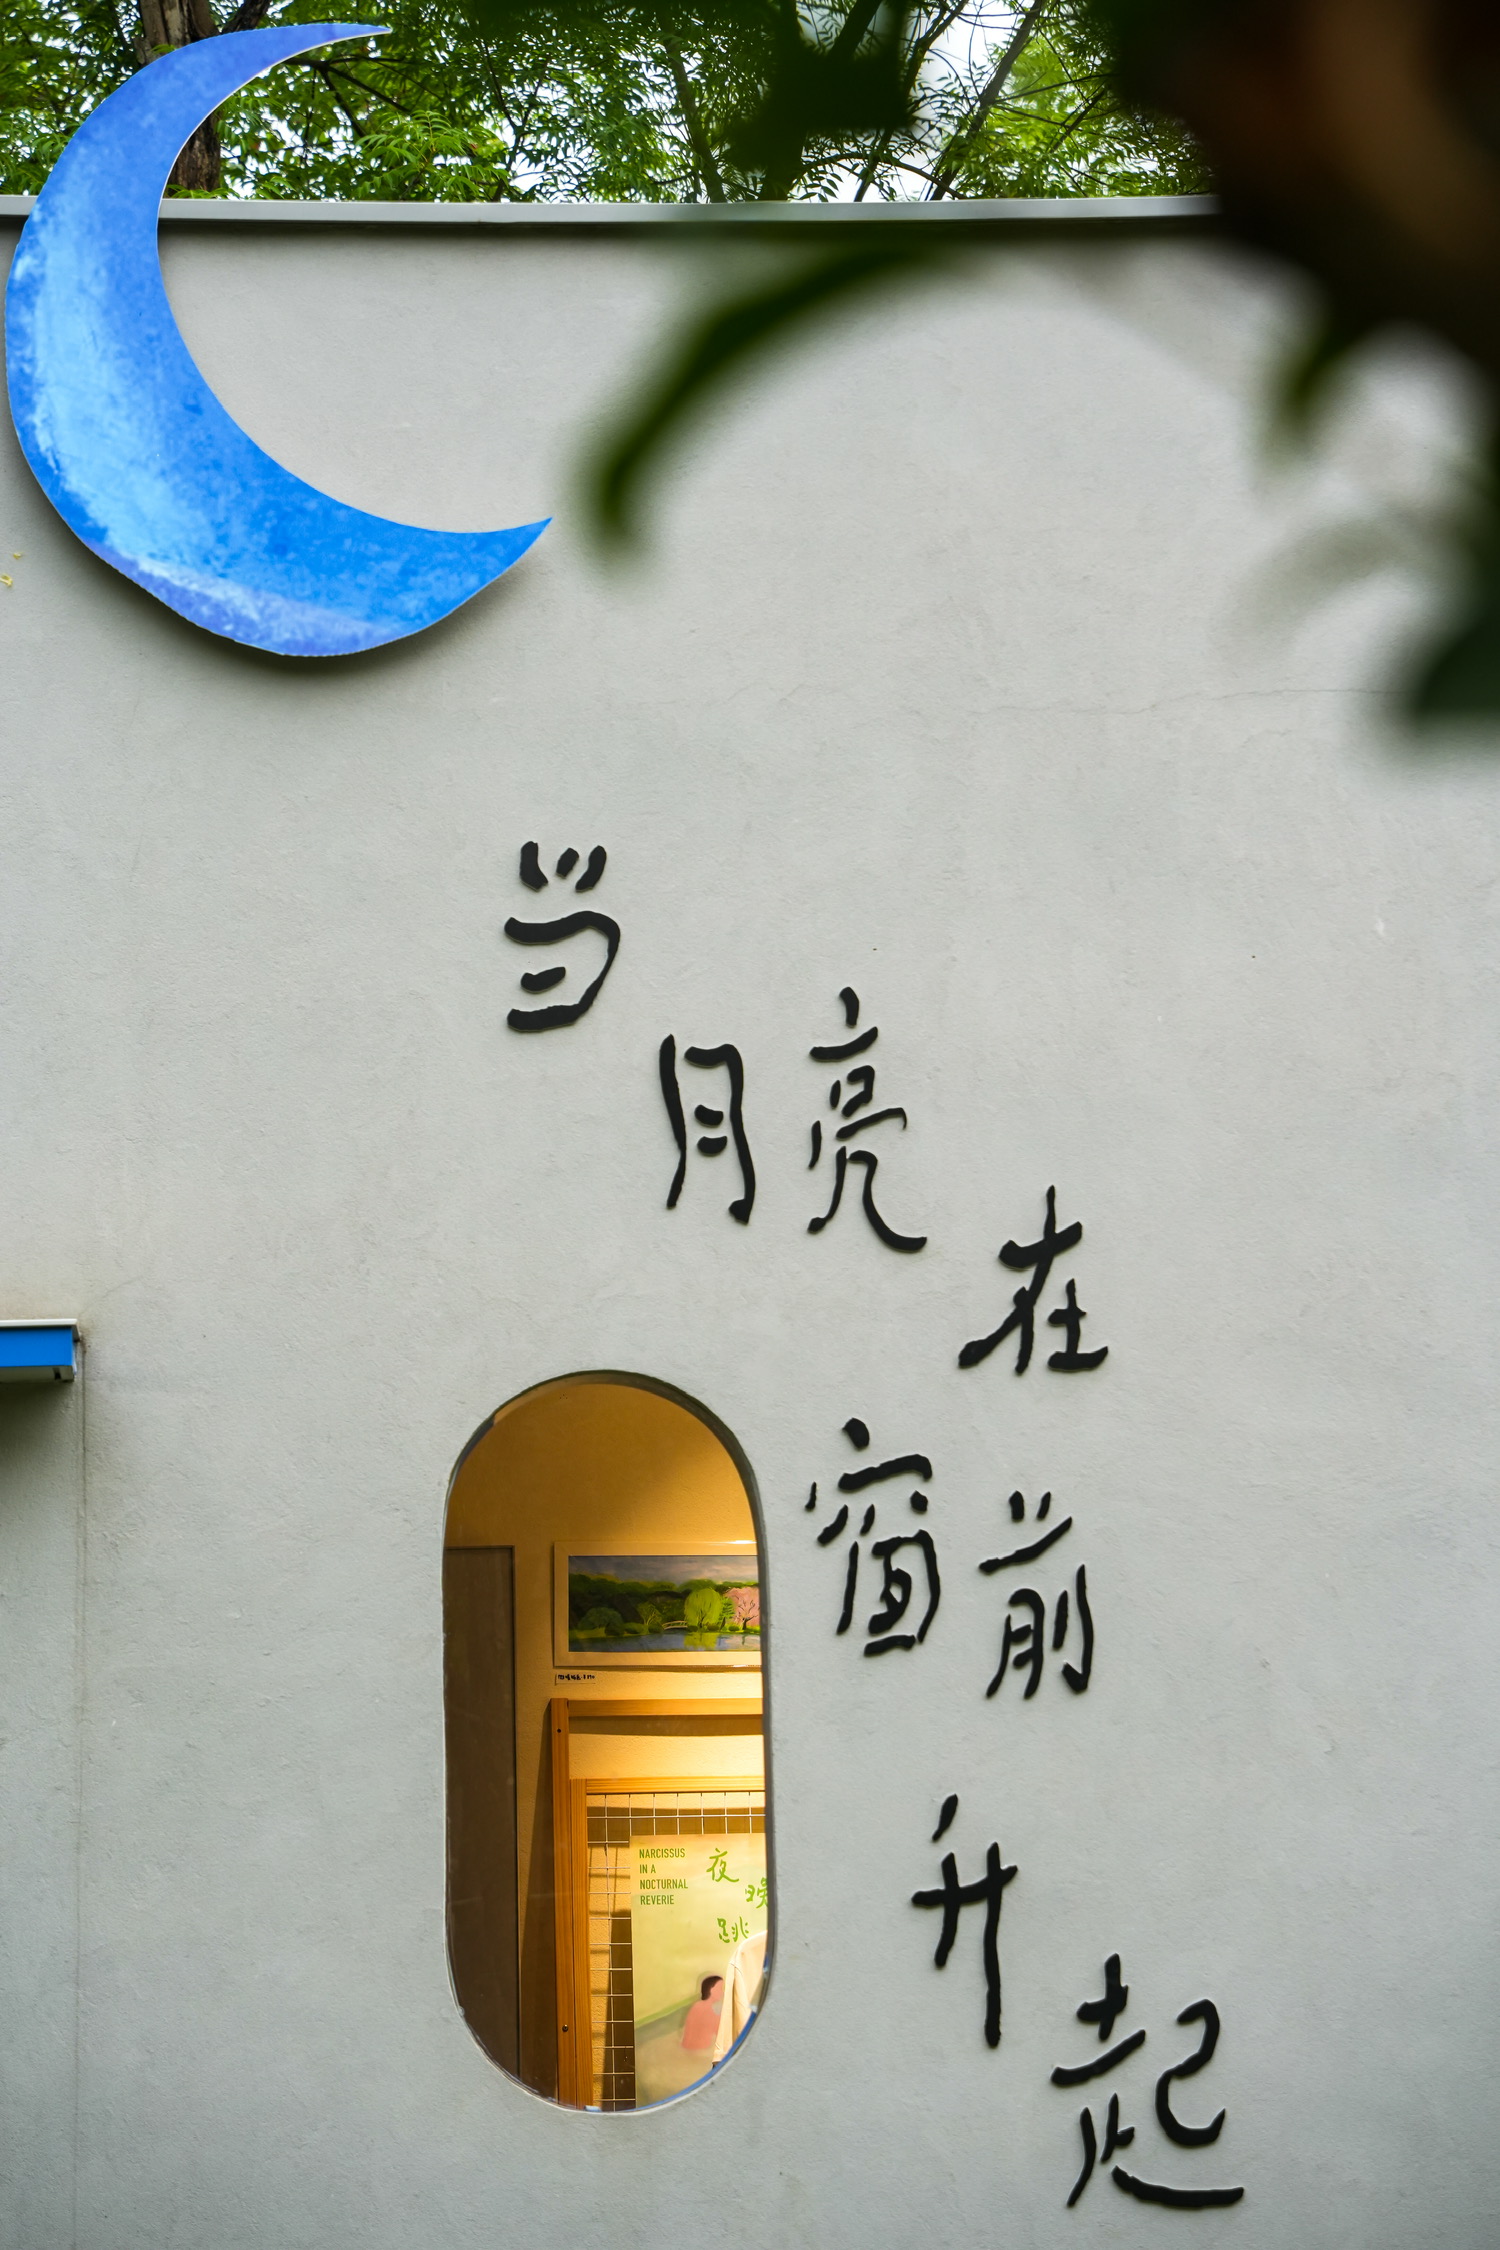 当
月亮
在
窗前
升
起
NARCISSUS
IN A
NOCTURNAL
REVERIE
夜
晚
跳